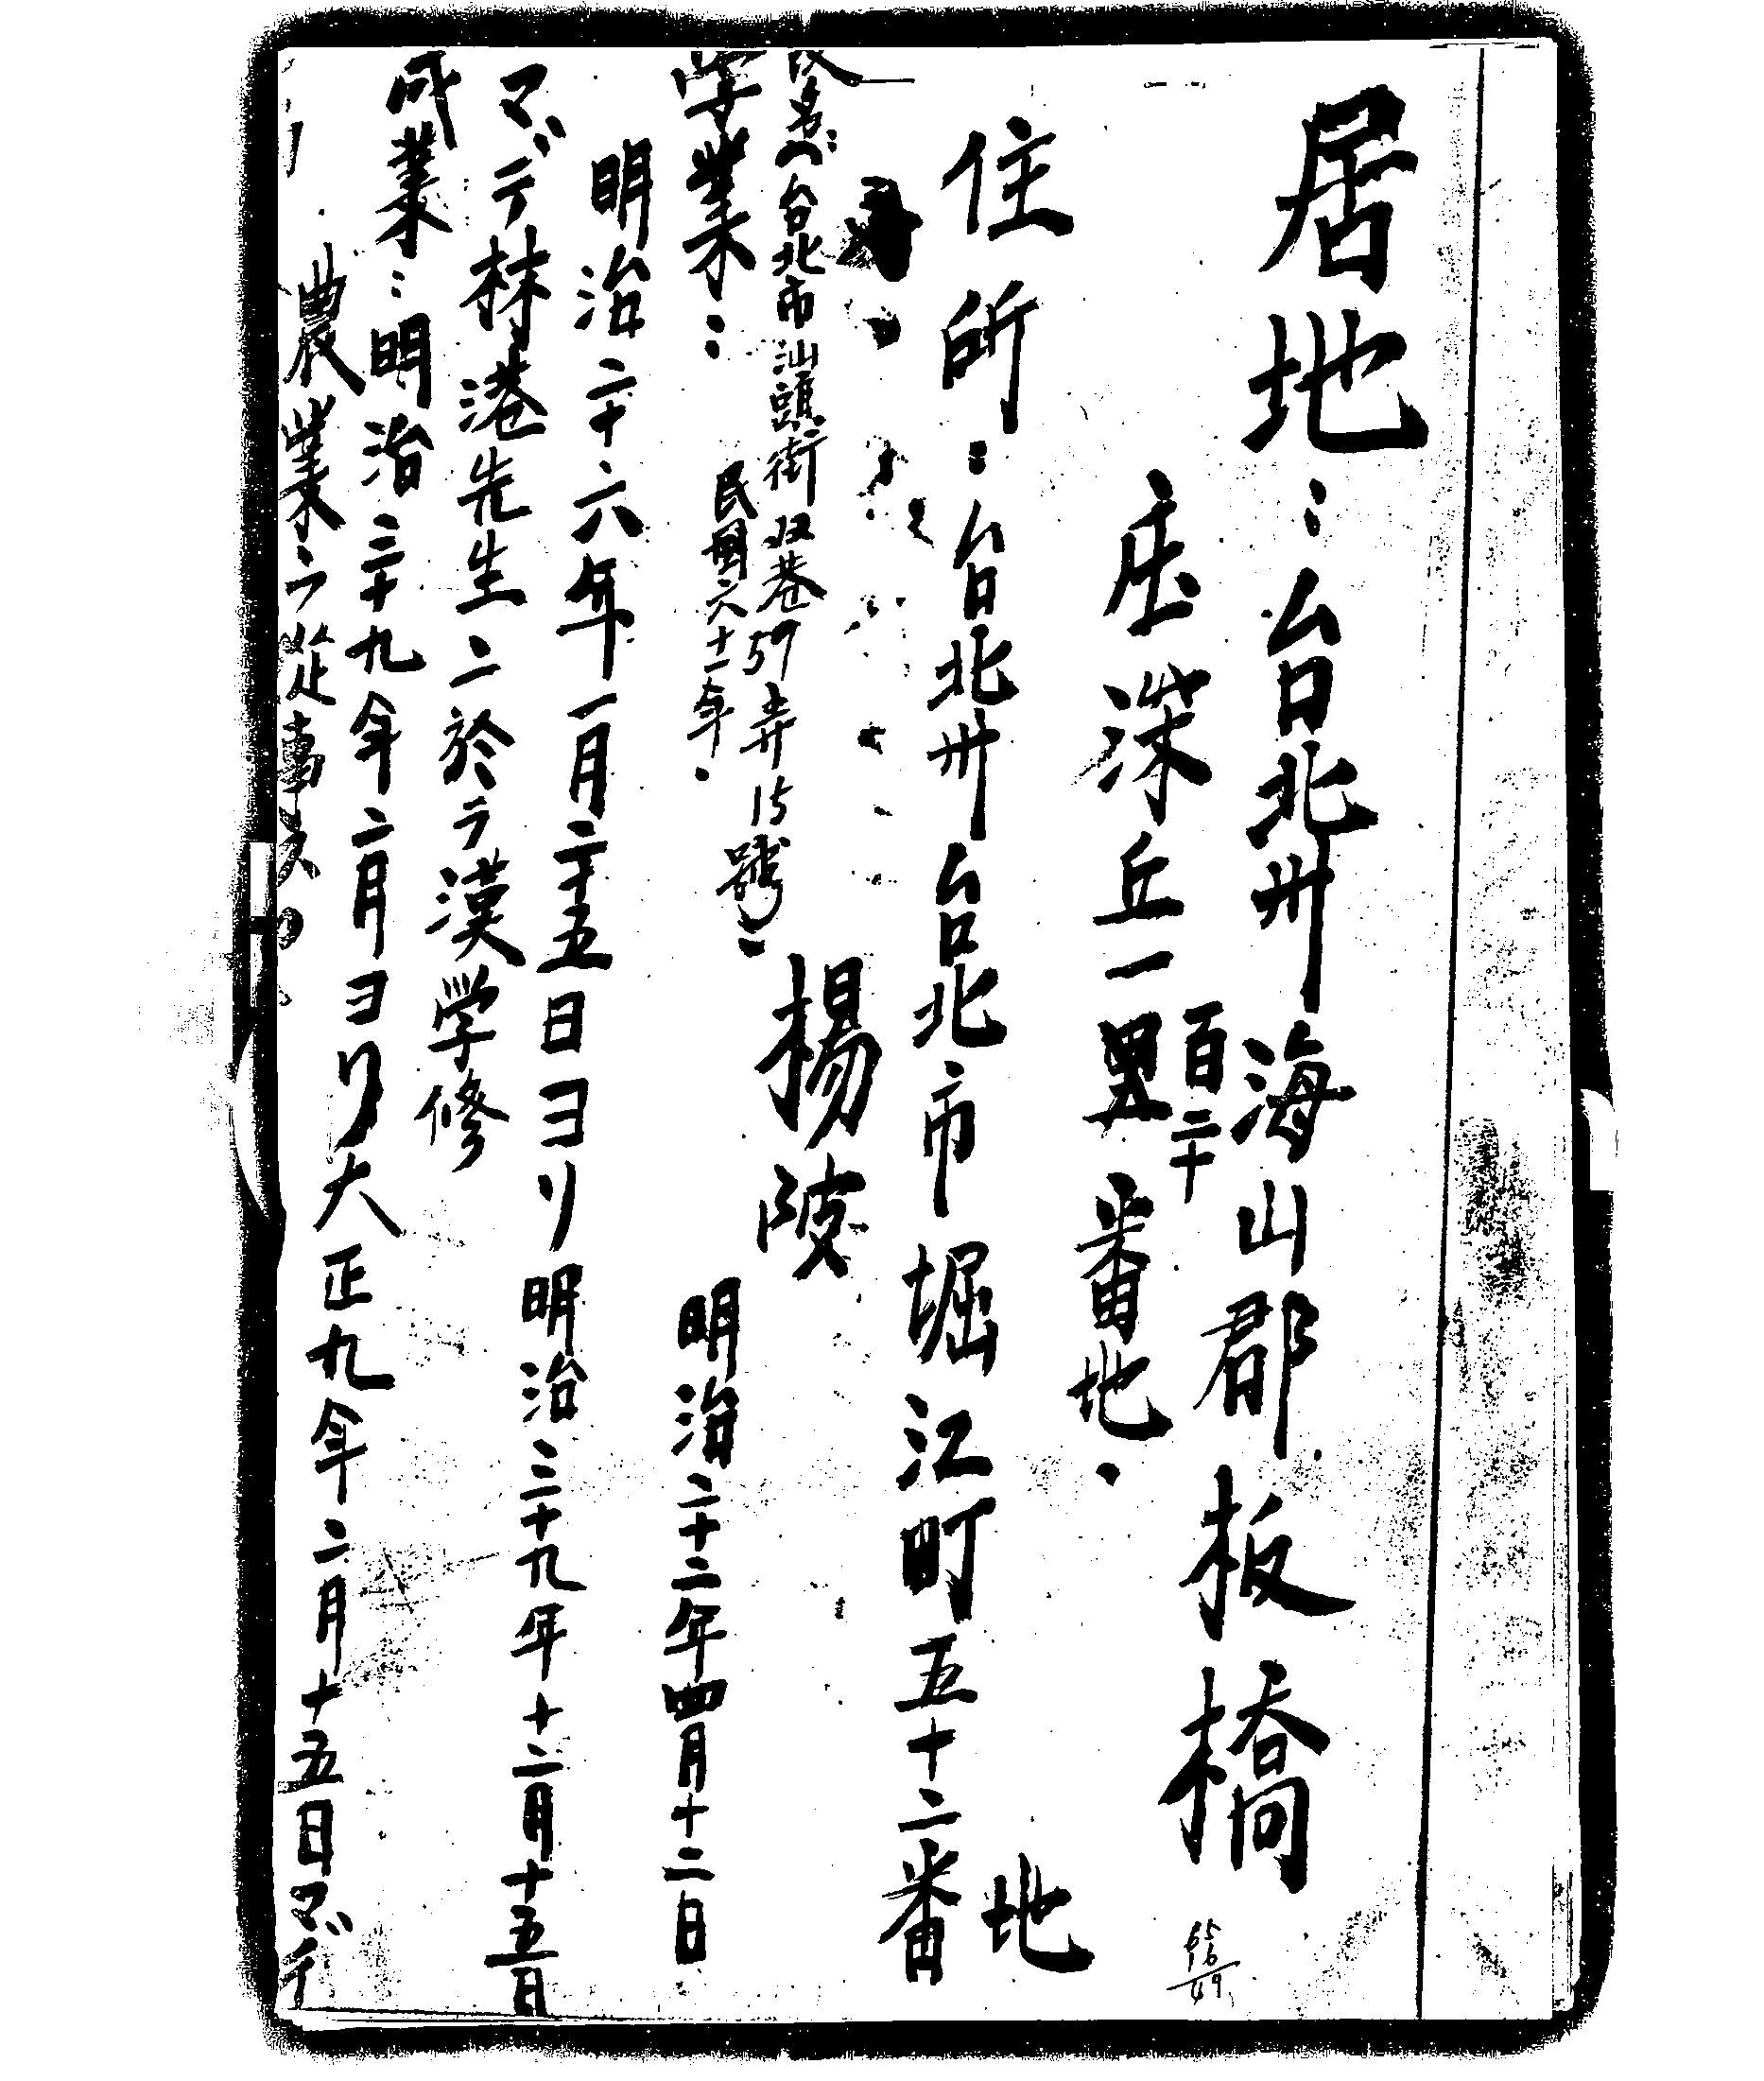 居地：台北州海山郡板橋
庄深丘一百二十里番地．
住所：台北州台北市堀江町五十二番地
台北市汕頭街双巷59弄15號：
民國六十一年．
楊陂 明治二十二年四月十二日
学業：
明治二十六年一月二十五日ヨリ明治三十九年十二月十五日
マデ林港先生ニ於テ漢学修
成業：明治三十九年二月ヨリ大正九年二月十五日マデ
農業ラ從事